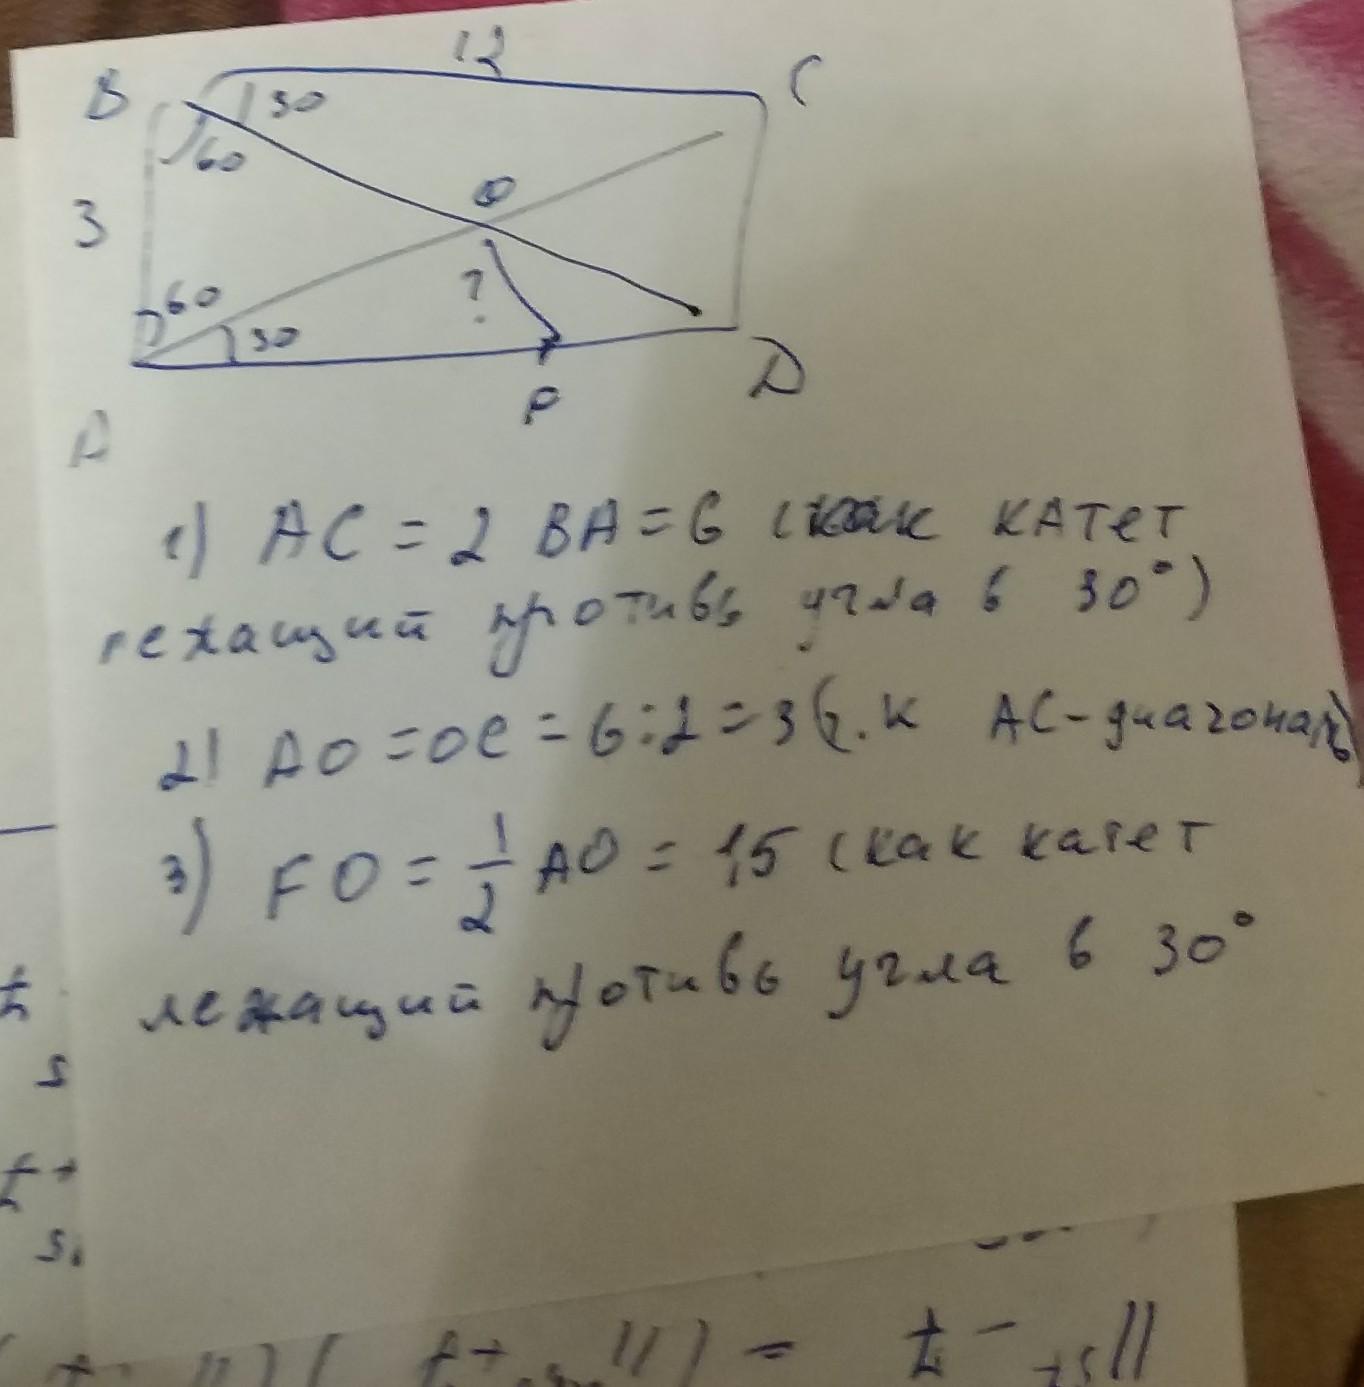 12
B
30
C
60
O
3
?
60
30
F
D
A
1) AC = 2 BA = 6 (как катет
лежащий противь угла в 30°)
2) AO = OC = 6:2 = 3 (т.к AC-диагональ)
3) FO = 1/2 AO = 1,5 (как катет
лежащий противь угла в 30°
t
s
t+
s.
t+
") =
t-